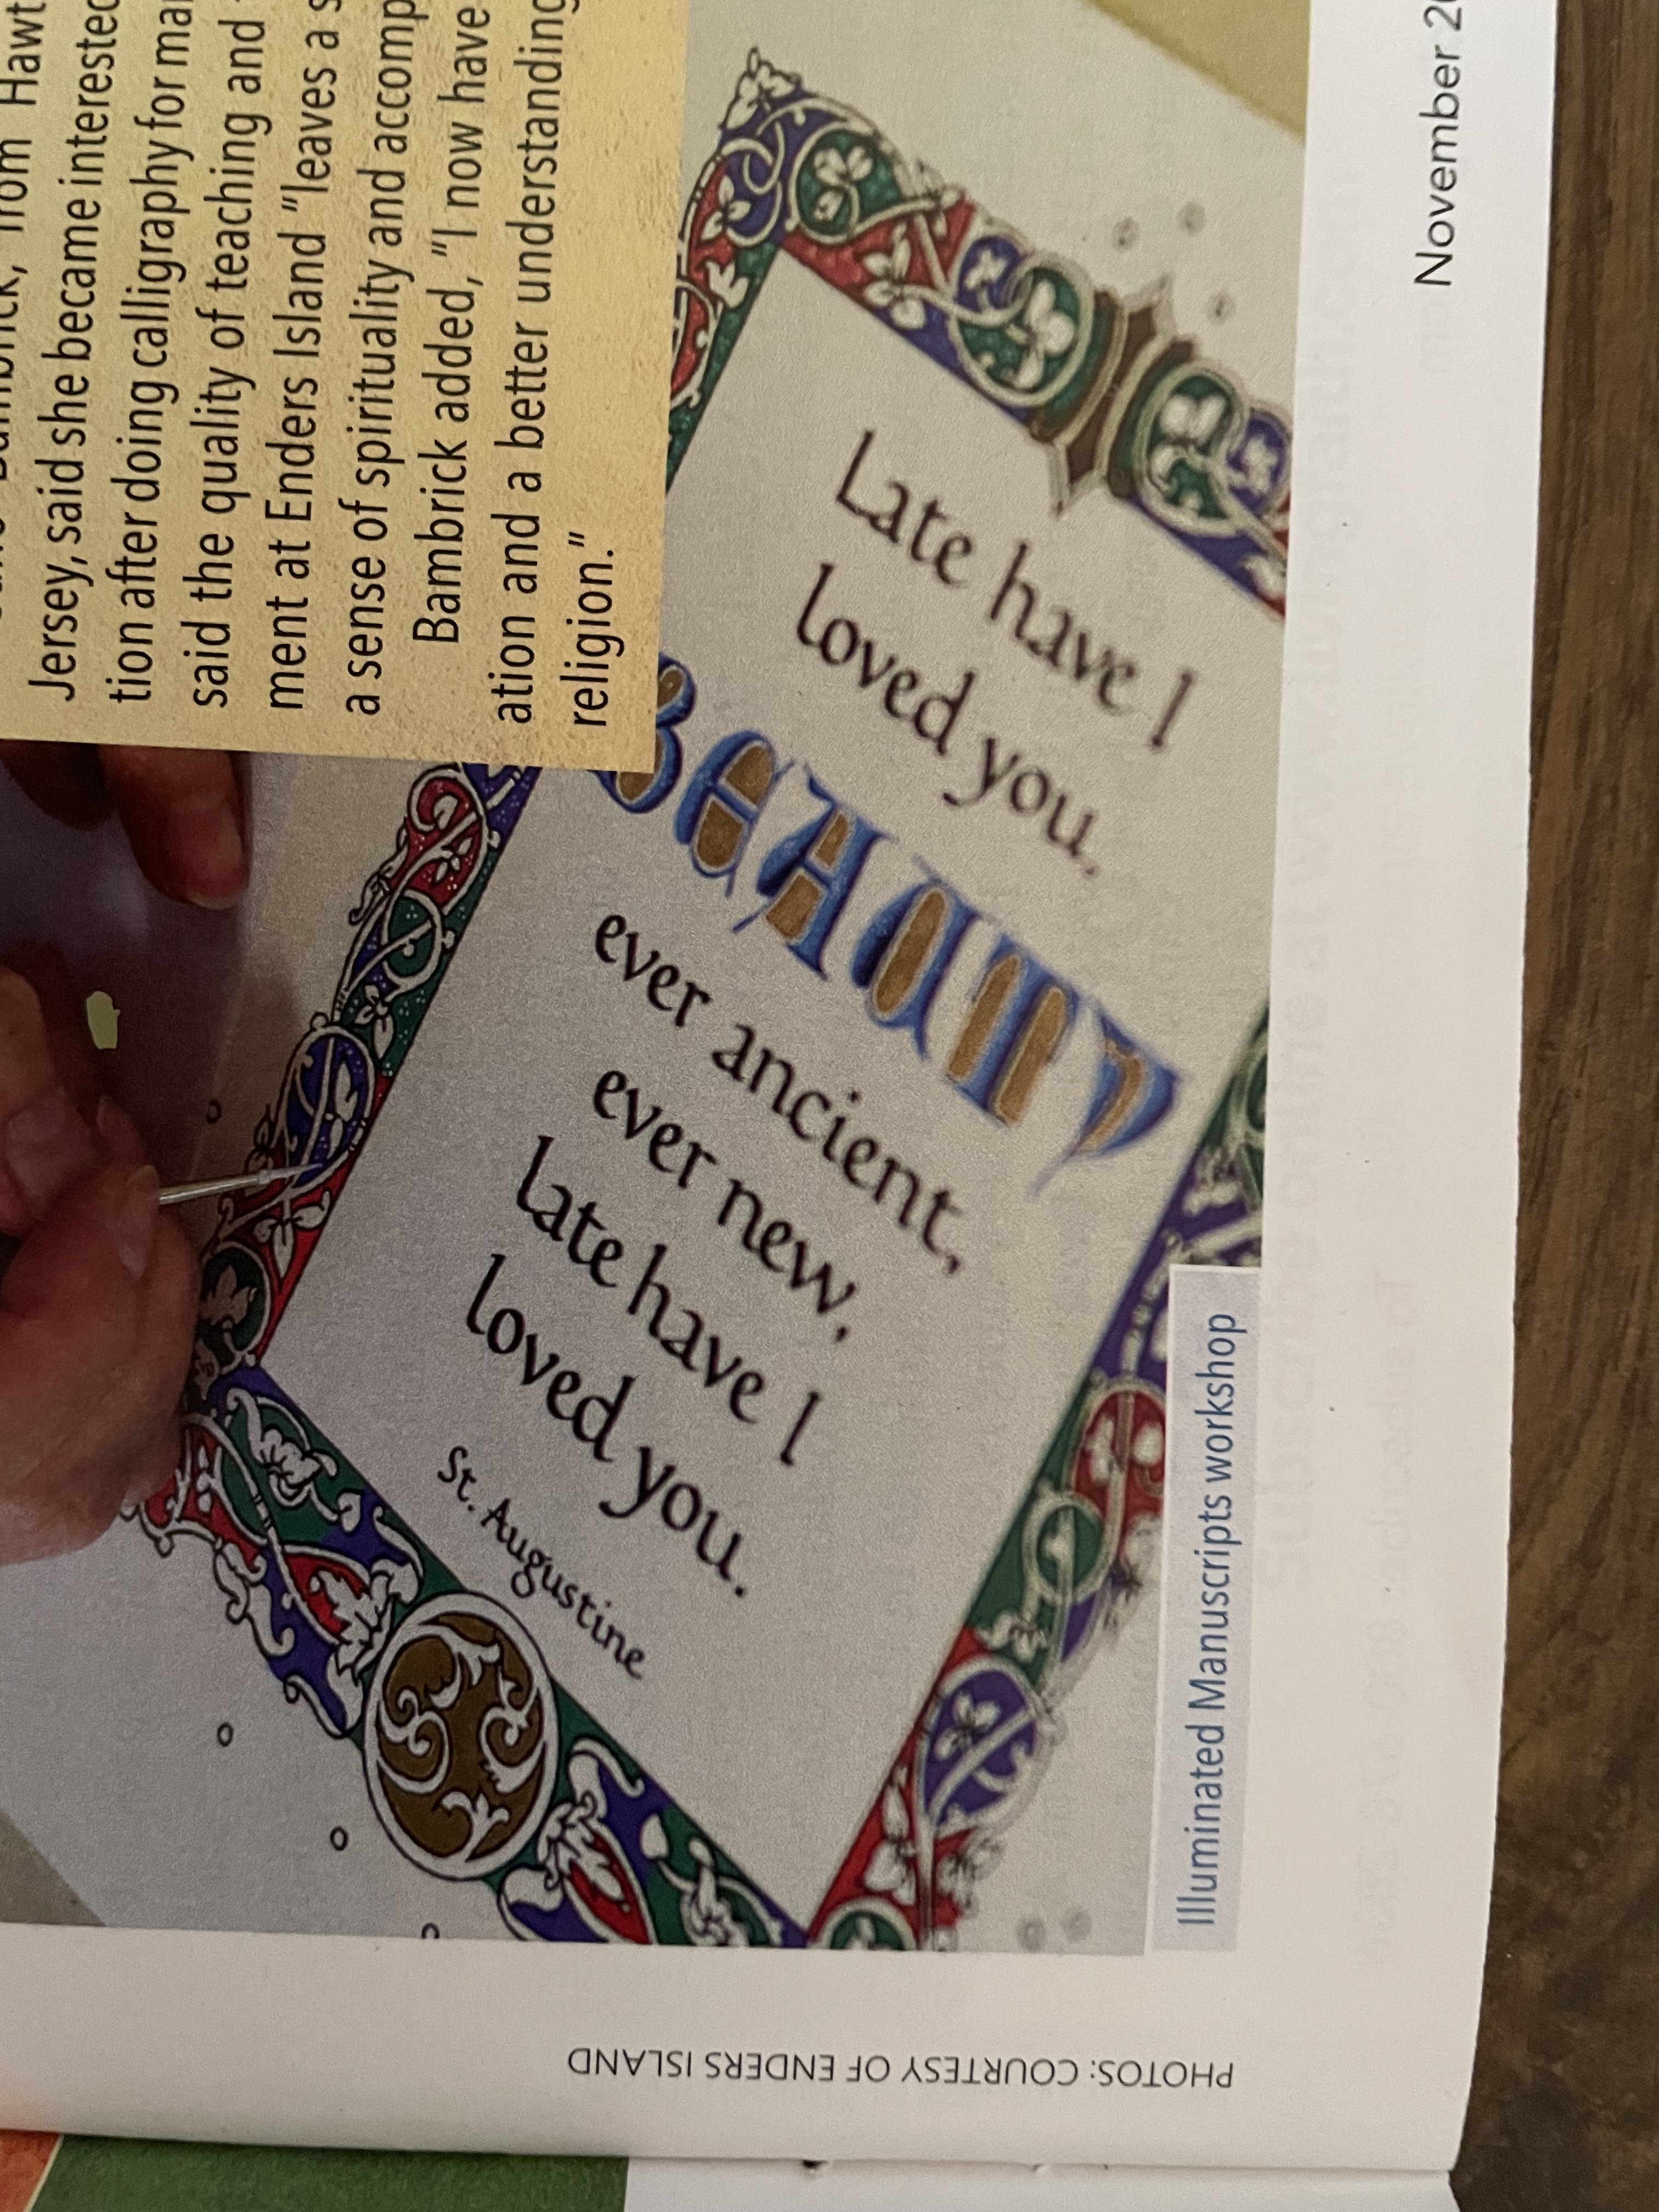 from Hawt
Jersey, said she became interested
tion after doing calligraphy for ma
said the quality of teaching and
ment at Enders Island "leaves a s
a sense of spirituality and accomp
Bambrick added, "I now have
ation and a better understanding
religion."
Late have I
loved you,
BEAUTY
ever ancient,
ever new,
late have I
loved you.
St. Augustine
Illuminated Manuscripts workshop
PHOTOS: COURTESY OF ENDERS ISLAND
November 20